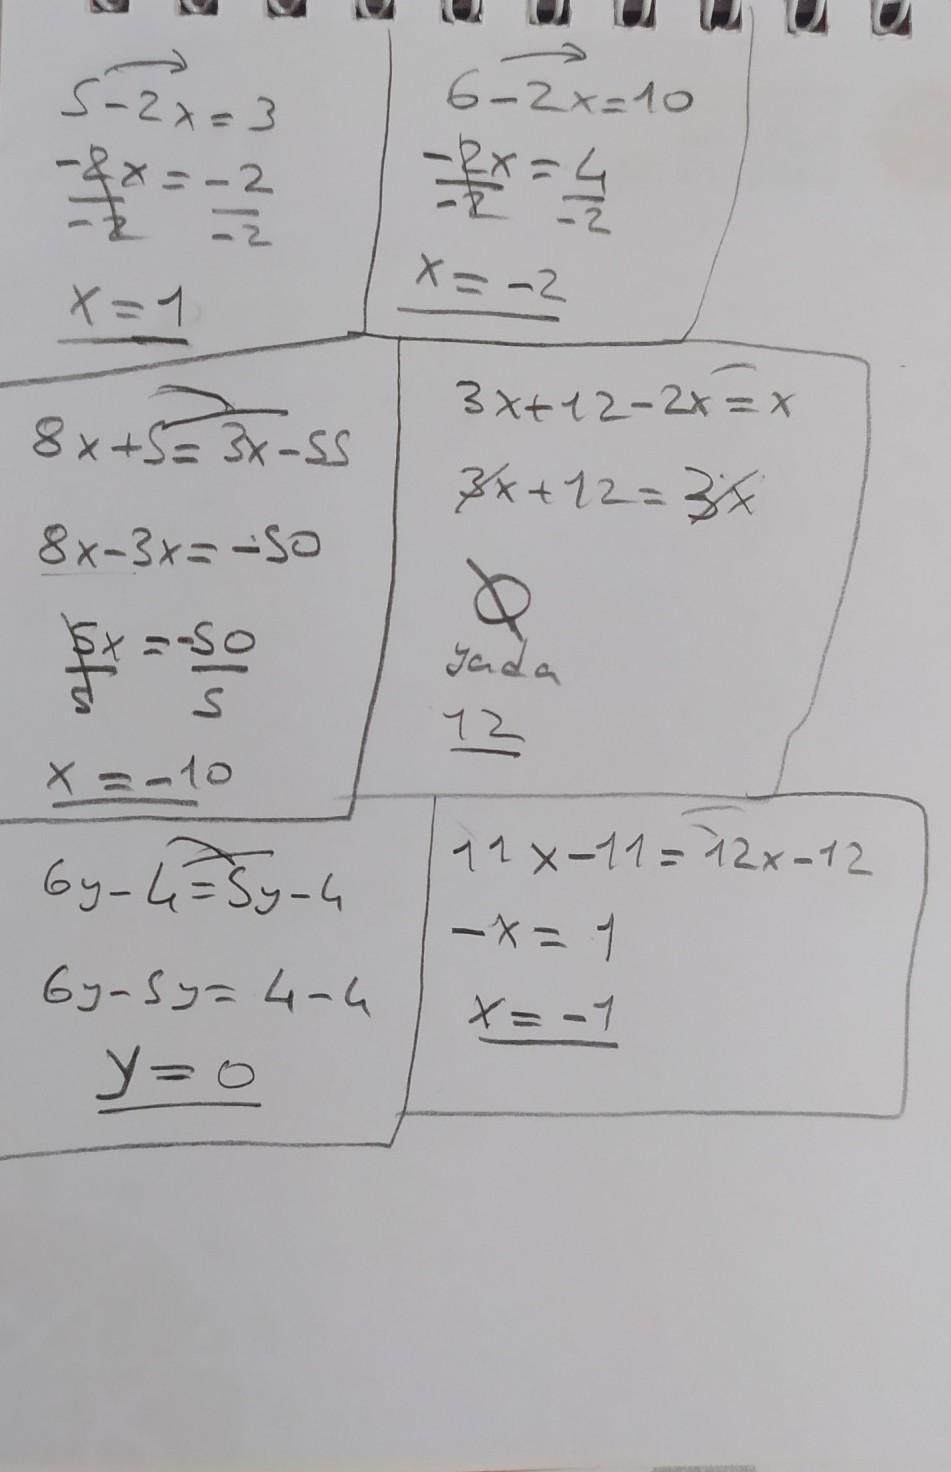 5-2x=3
-2x = -2
-2 -2
x=1
6-2x=10
-2x = 4
-2 -2
x = -2
8x+5=3x-55
8x-3x=-50
5x = -50
5 5
x = -10
3x+12-2x=x
3x+12=3x
Ø
yada
12
6y-4=5y-4
6y-5y=4-4
y=0
11x-11=12x-12
-x=1
x=-1